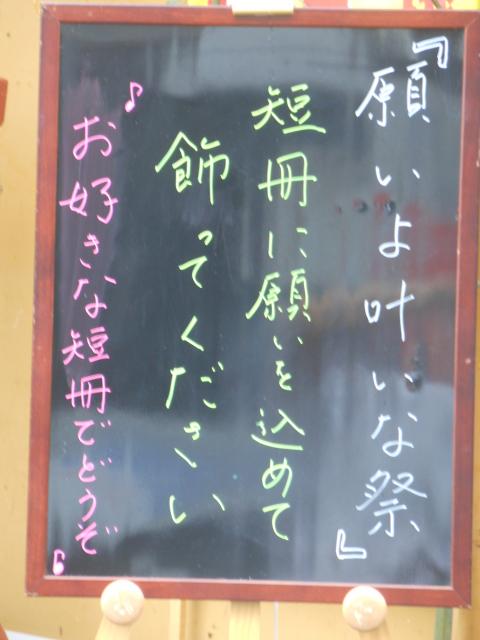 『願いよ叶いな祭』
短冊に願いを込めて
飾ってください
♪お好きな短冊でどうぞ♪